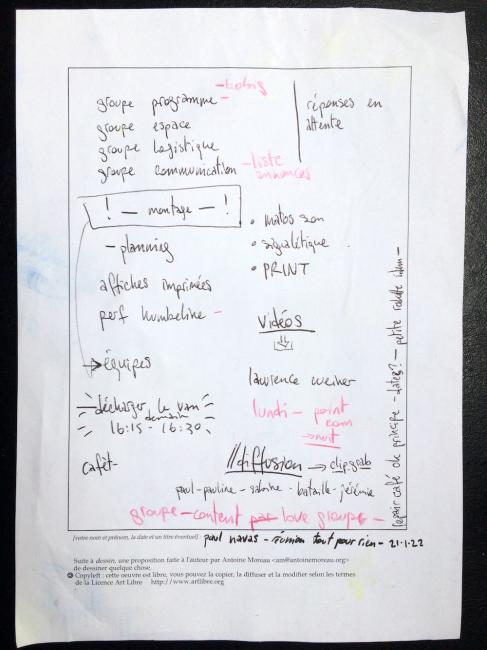 groupe programme -
groupe espace
groupe logistique
groupe communication
- liste
annonces
réponses en
attente
! - montage - !
- planning
affiches imprimées
perf humbeline -
→ équipes
décharger le van
demain
16:15 - 16:30
cafèt-
• matos son
• signalétique
• PRINT
vidéos
lawrence weiner
lundi - point
com
→ nuit
// diffusion → clipgrab
paul - pauline - sabrine - bataille - jérémie
groupe - content par love groupe -
repair café ok principe - dates? - petite
[votre nom et prénom, la date et un titre éventuel] : paul navas - réunion tout pour rien - 21.1.22
Suite à dessin, une proposition faite à l'auteur par Antoine Moreau <am@antoinemoreau.org>
de dessiner quelque chose.
Copyleft : cette oeuvre est libre, vous pouvez la copier, la diffuser et la modifier selon les termes
de la Licence Art Libre http://www.artlibre.org